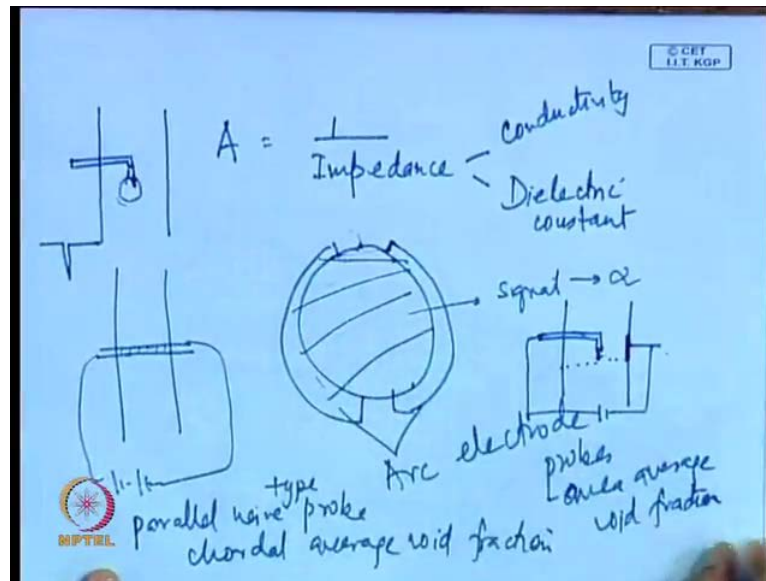 © CET
I.I.T. KGP
A = 1
Impedance
Conductivity
Dielectric
constant
signal → α
Arc electrode
probes
area average
void fraction
type
parallel wire probe
chordal average void fraction
NPTEL